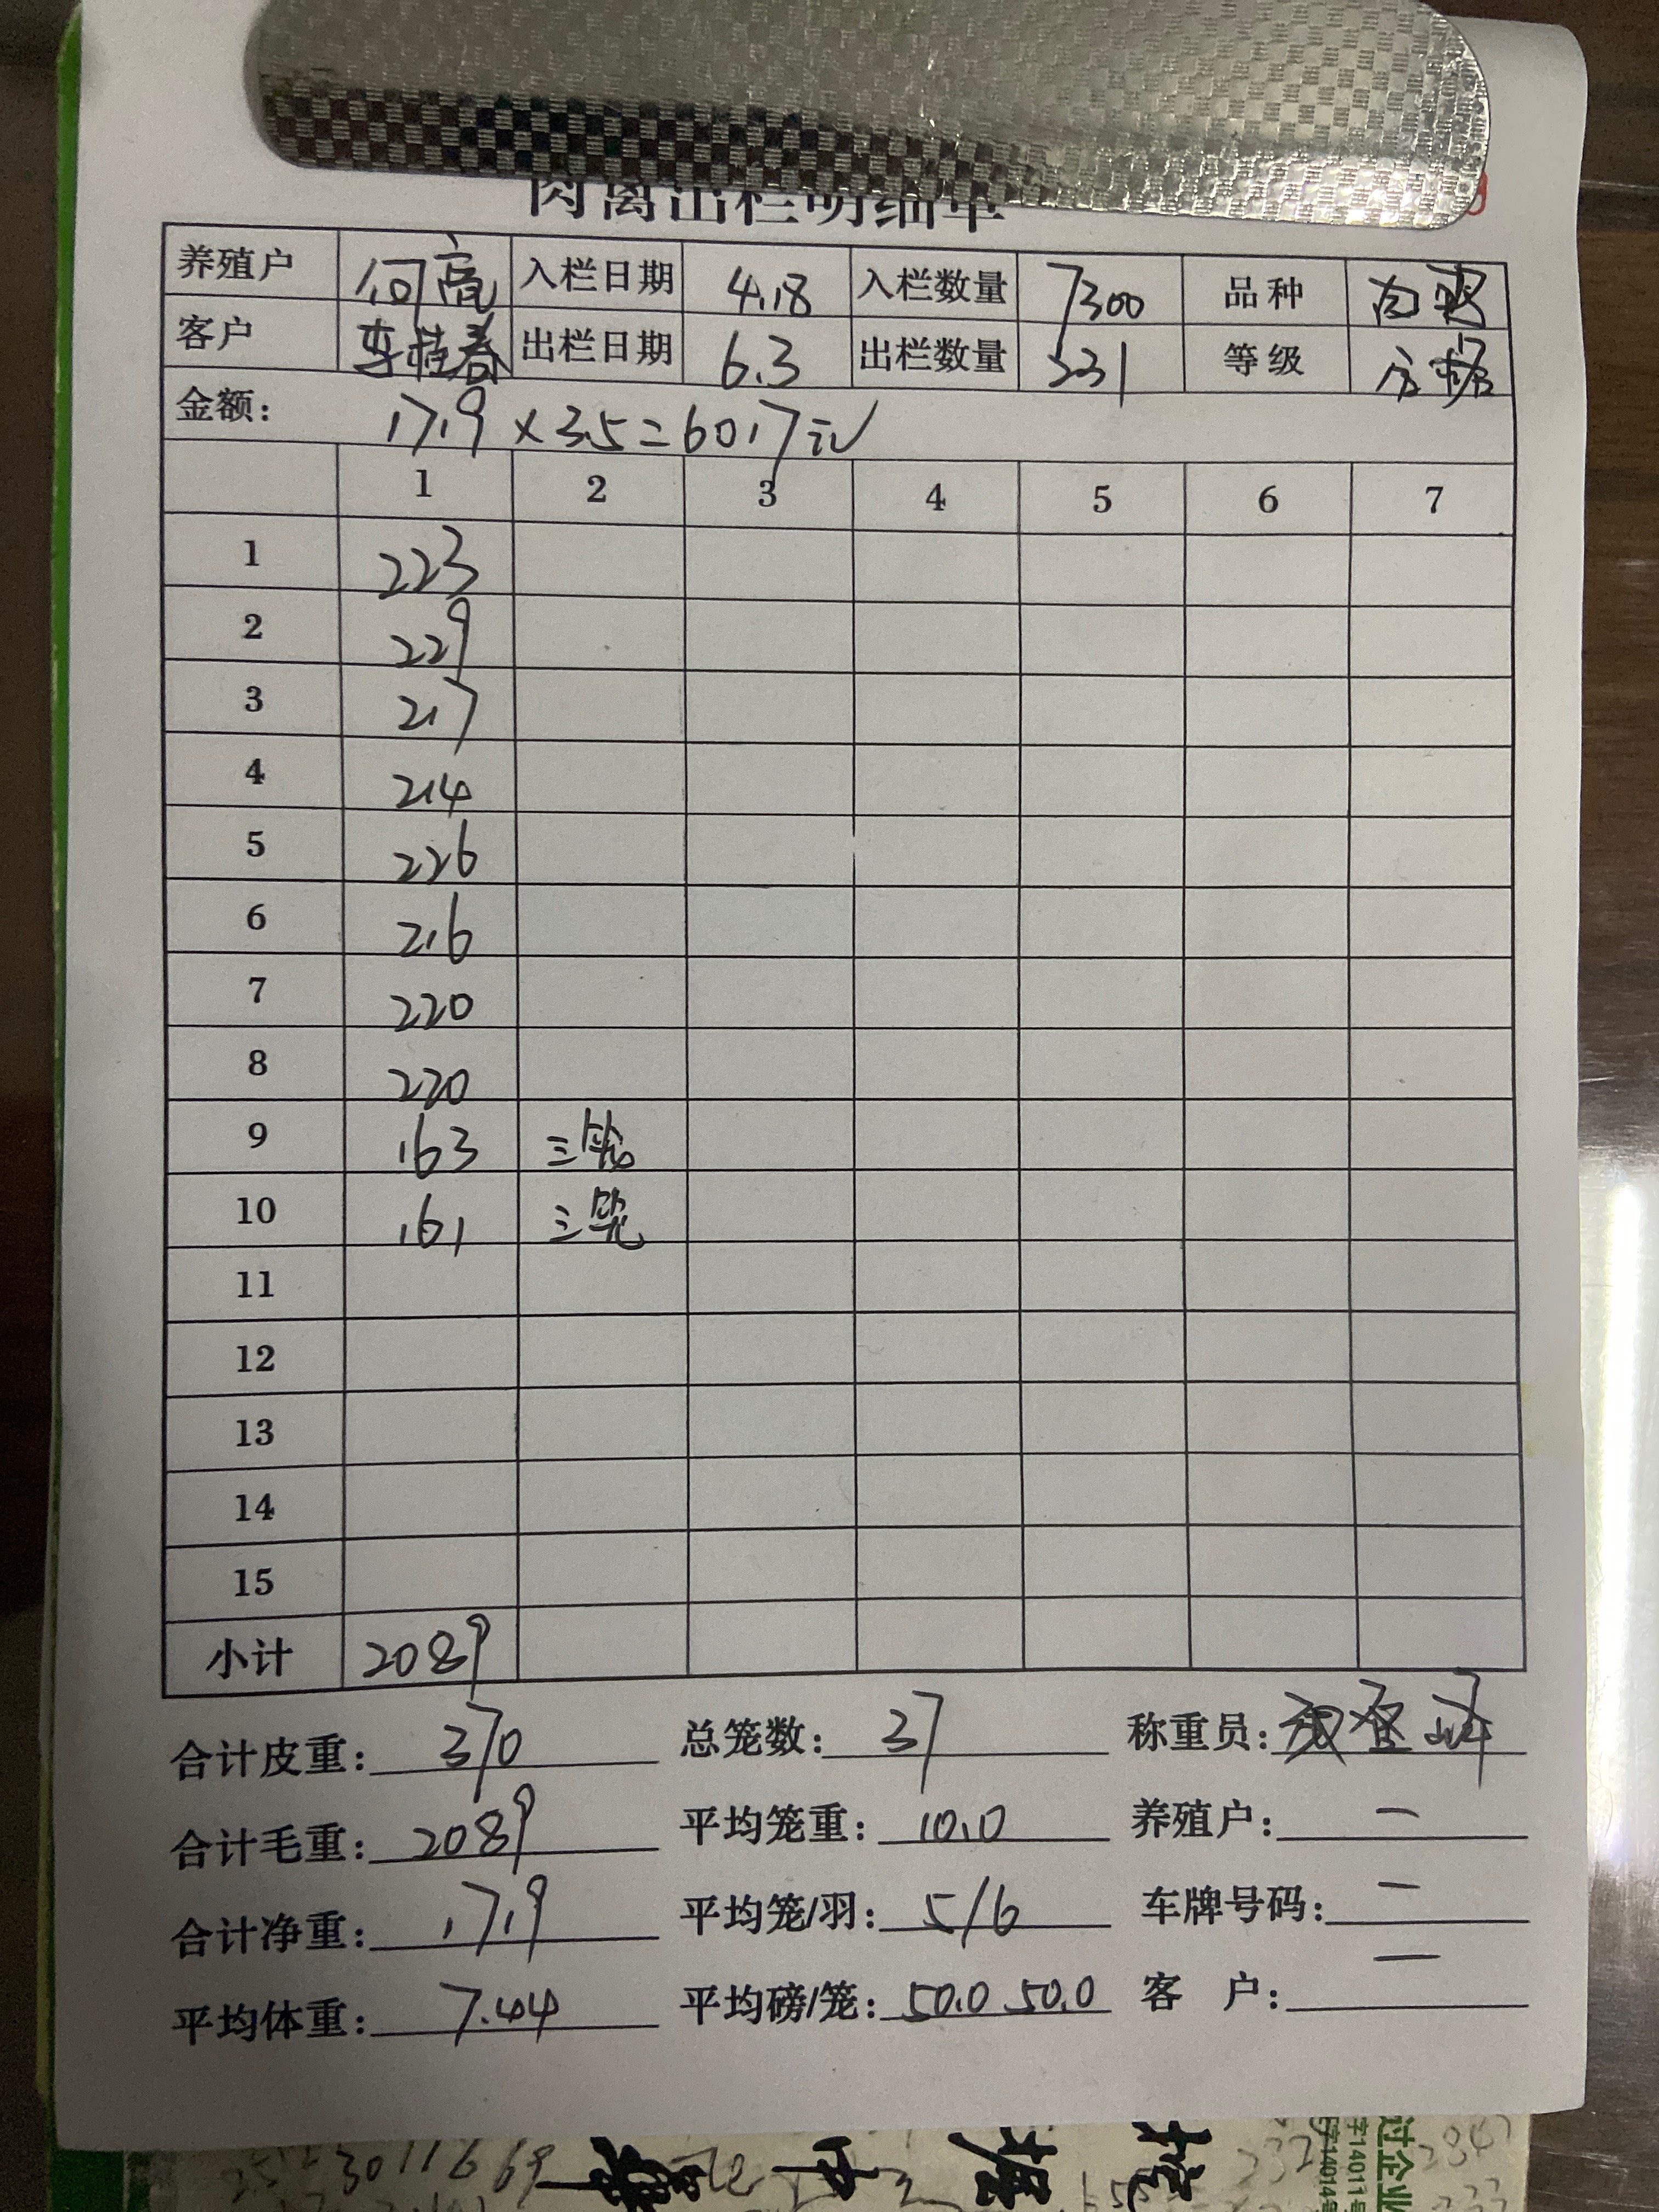 肉禽出栏明细单
养殖户 何高 入栏日期 4.18 入栏数量 7300 品种
客户 李桂春 出栏日期 6.3 出栏数量 231 等级
金额: 1719×3.5=6017元
1 2 3 4 5 6 7
1 223
2 229
3 217
4 214
5 226
6 216
7 220
8 220
9 163 三笼
10 161 三笼
11
12
13
14
15
小计 2089
合计皮重: 370 总笼数: 37 称重员:
合计毛重: 2089 平均笼重: 10.0 养殖户: 一
合计净重: 1719 平均笼/羽: 5/6 车牌号码: 一
平均体重: 7.44 平均磅/笼: 50.0 50.0 客 户: 一